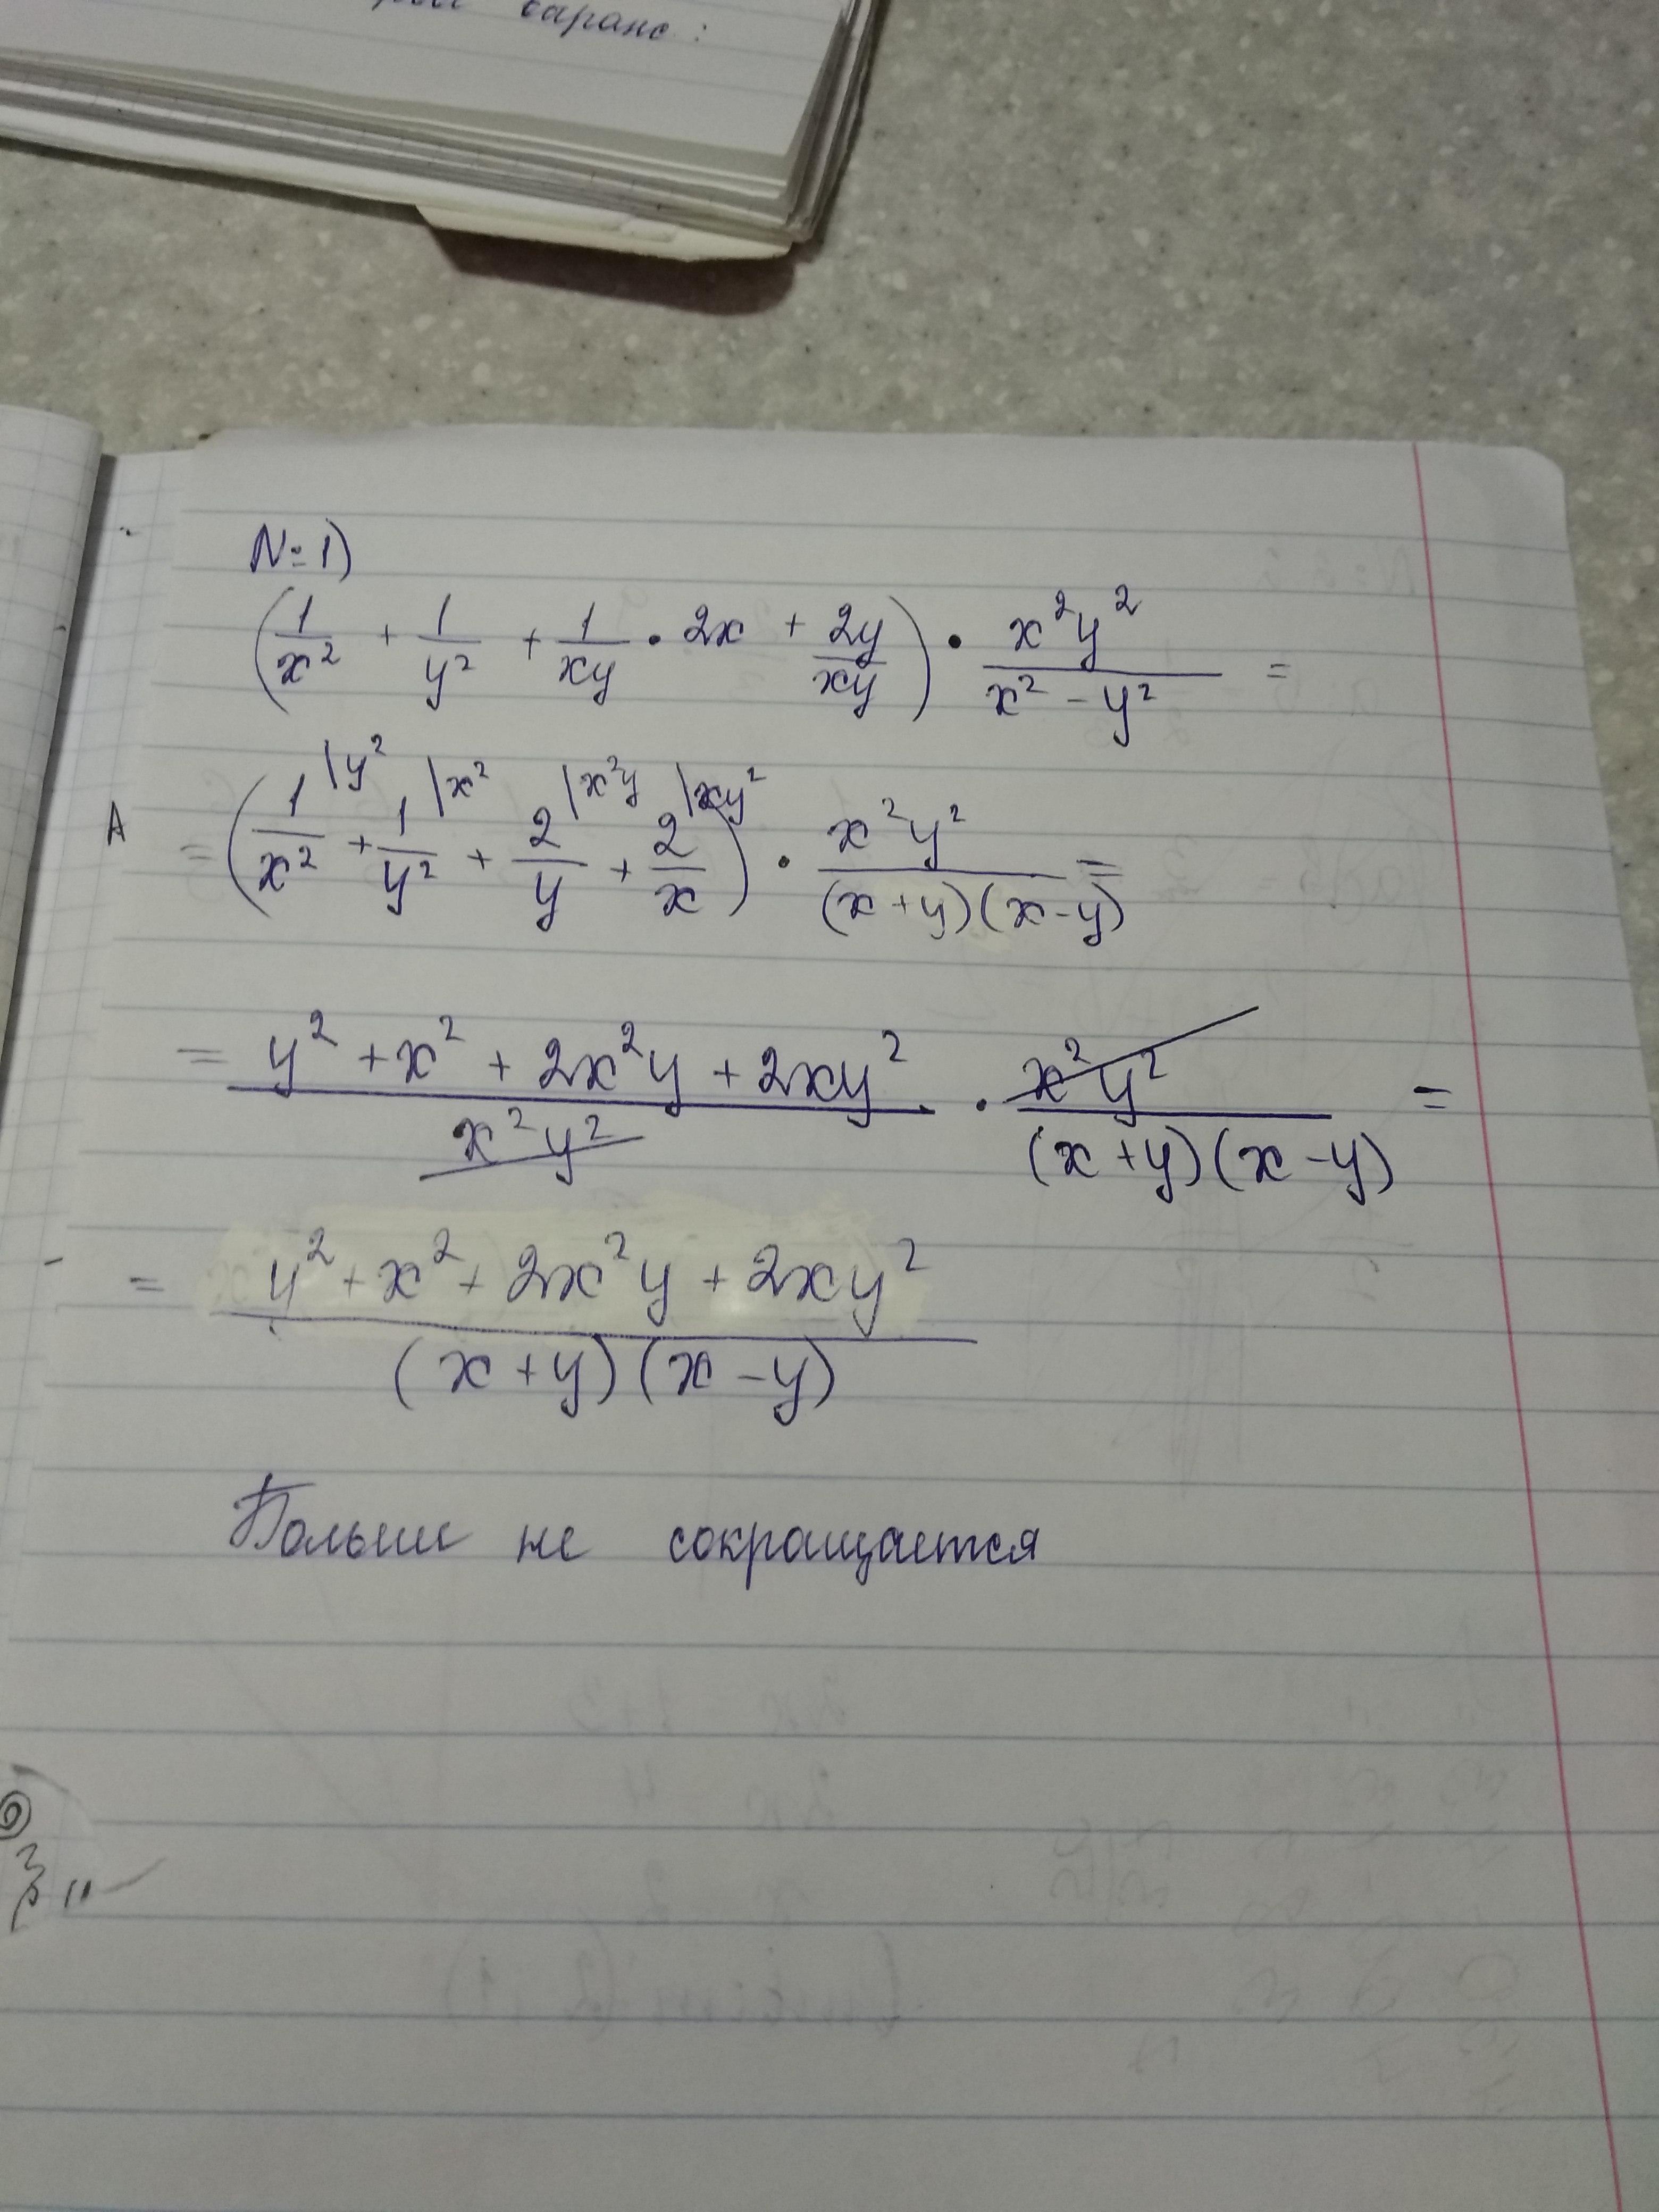 :
N=1)
(1/x² + 1/y² + 1/xy • 2x + 2y/xy) • x²y²/x² - y² =
A = (1/x² |y² + 1/y² |x² + 2/y |x²y + 2/x |xy²) • x²y²/(x+y)(x-y) =
= y² + x² + 2x²y + 2xy²/x²y² • x²y²/(x+y)(x-y) =
= y² + x² + 2x²y + 2xy²/(x+y)(x-y)
Больше не сокращается